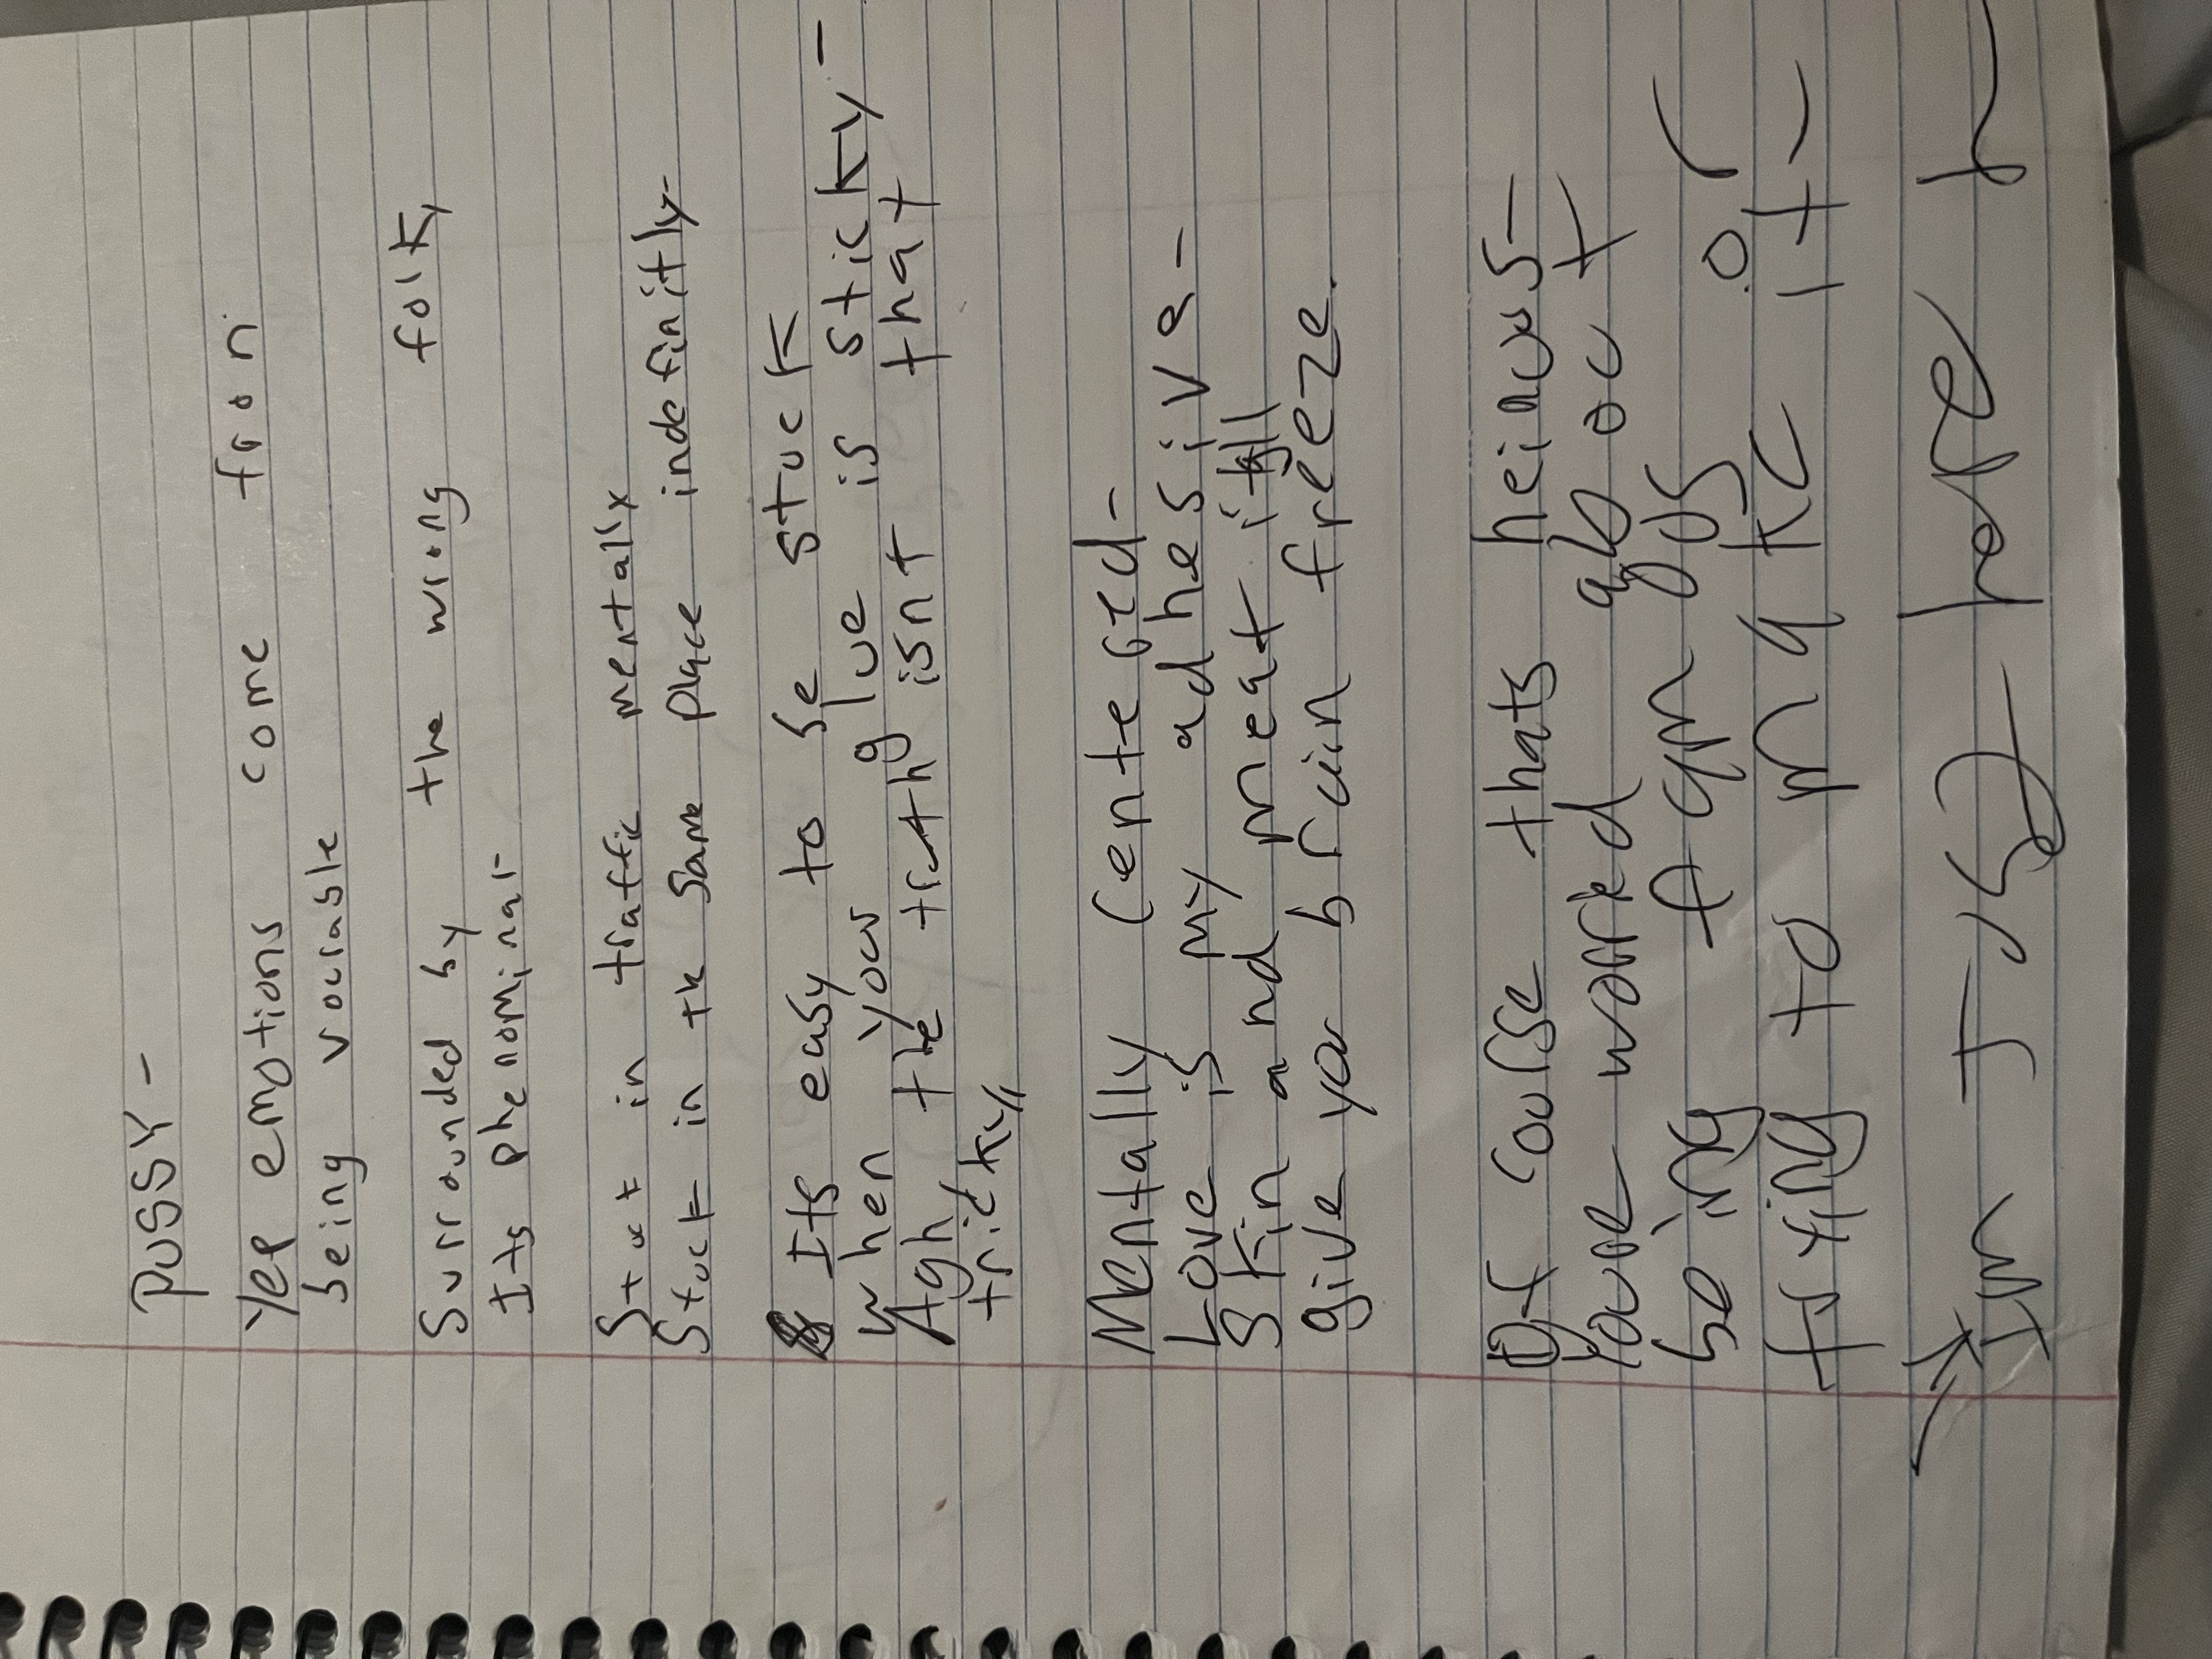 PUSSY-
Yep emotions come from
being vocrable
Surrounded by the wrong folk,
Its phenominar
Stuck in traffic mentally
Stuck in the same place indefinitly-
Its easy to be stuck
when your glue is sticky-
Agh, the truth isnt that
tricky,,
Mentally Centered-
Love is my adhesive-
Skin and meat itll
give you brain freeze.
Of course thats heinous-
Youre worried about
being famous or
trying to make it-
Im Just here